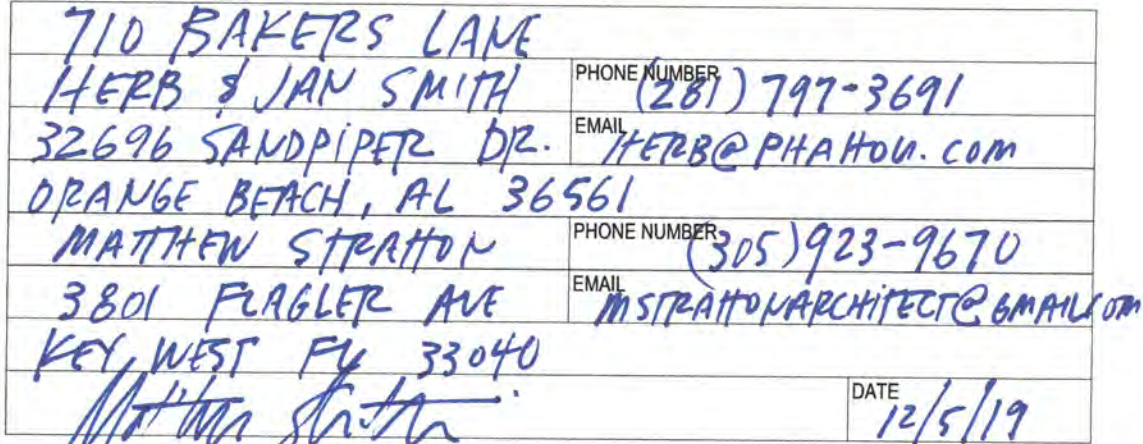 710 BAKERS LANE
HERB & JAN SMITH PHONE NUMBER (281) 797-3691
32696 SANDPIPER DR. EMAIL HERB@PHAHOU.COM
ORANGE BEACH, AL 36561
MATTHEW STRATTON PHONE NUMBER (305)923-9670
3801 FLAGLER AVE EMAIL MSTRATTONARCHITECT@GMAIL.COM
KEY WEST FL 33040
DATE 12/5/19